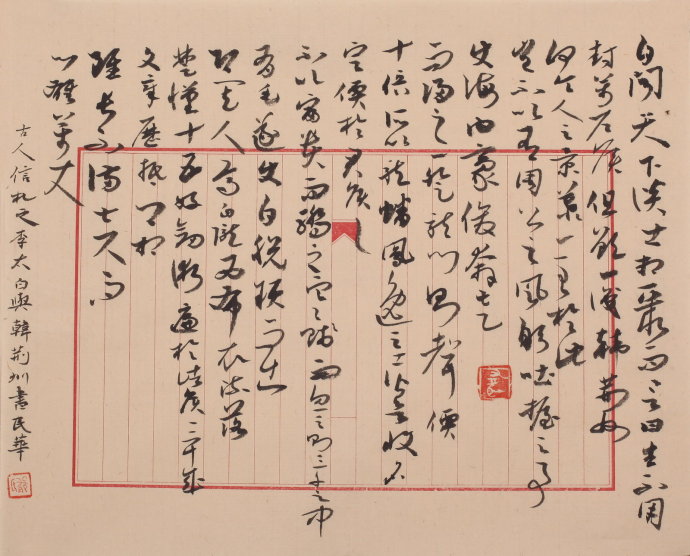 白聞天下談士相聚而言曰生不用
封萬户侯但願一識韓荆州
何令人之景慕一至於此
豈不以有周公之風躬吐握之事
使海内豪俊奔走
而歸之一登龍門則聲價
十倍所以龍蟠鳳逸之士皆欲收名
定價於君侯
不以富貴而驕之寒賤而忽之則三千之中
有毛遂使白脱穎而出
即其人焉白隴西布衣流落
楚漢十五好劍術遍於諸侯三十成
文章歷抵卿相
雖長不滿七尺而
心雄萬丈
古人信札之李太白與韓荆州書民華